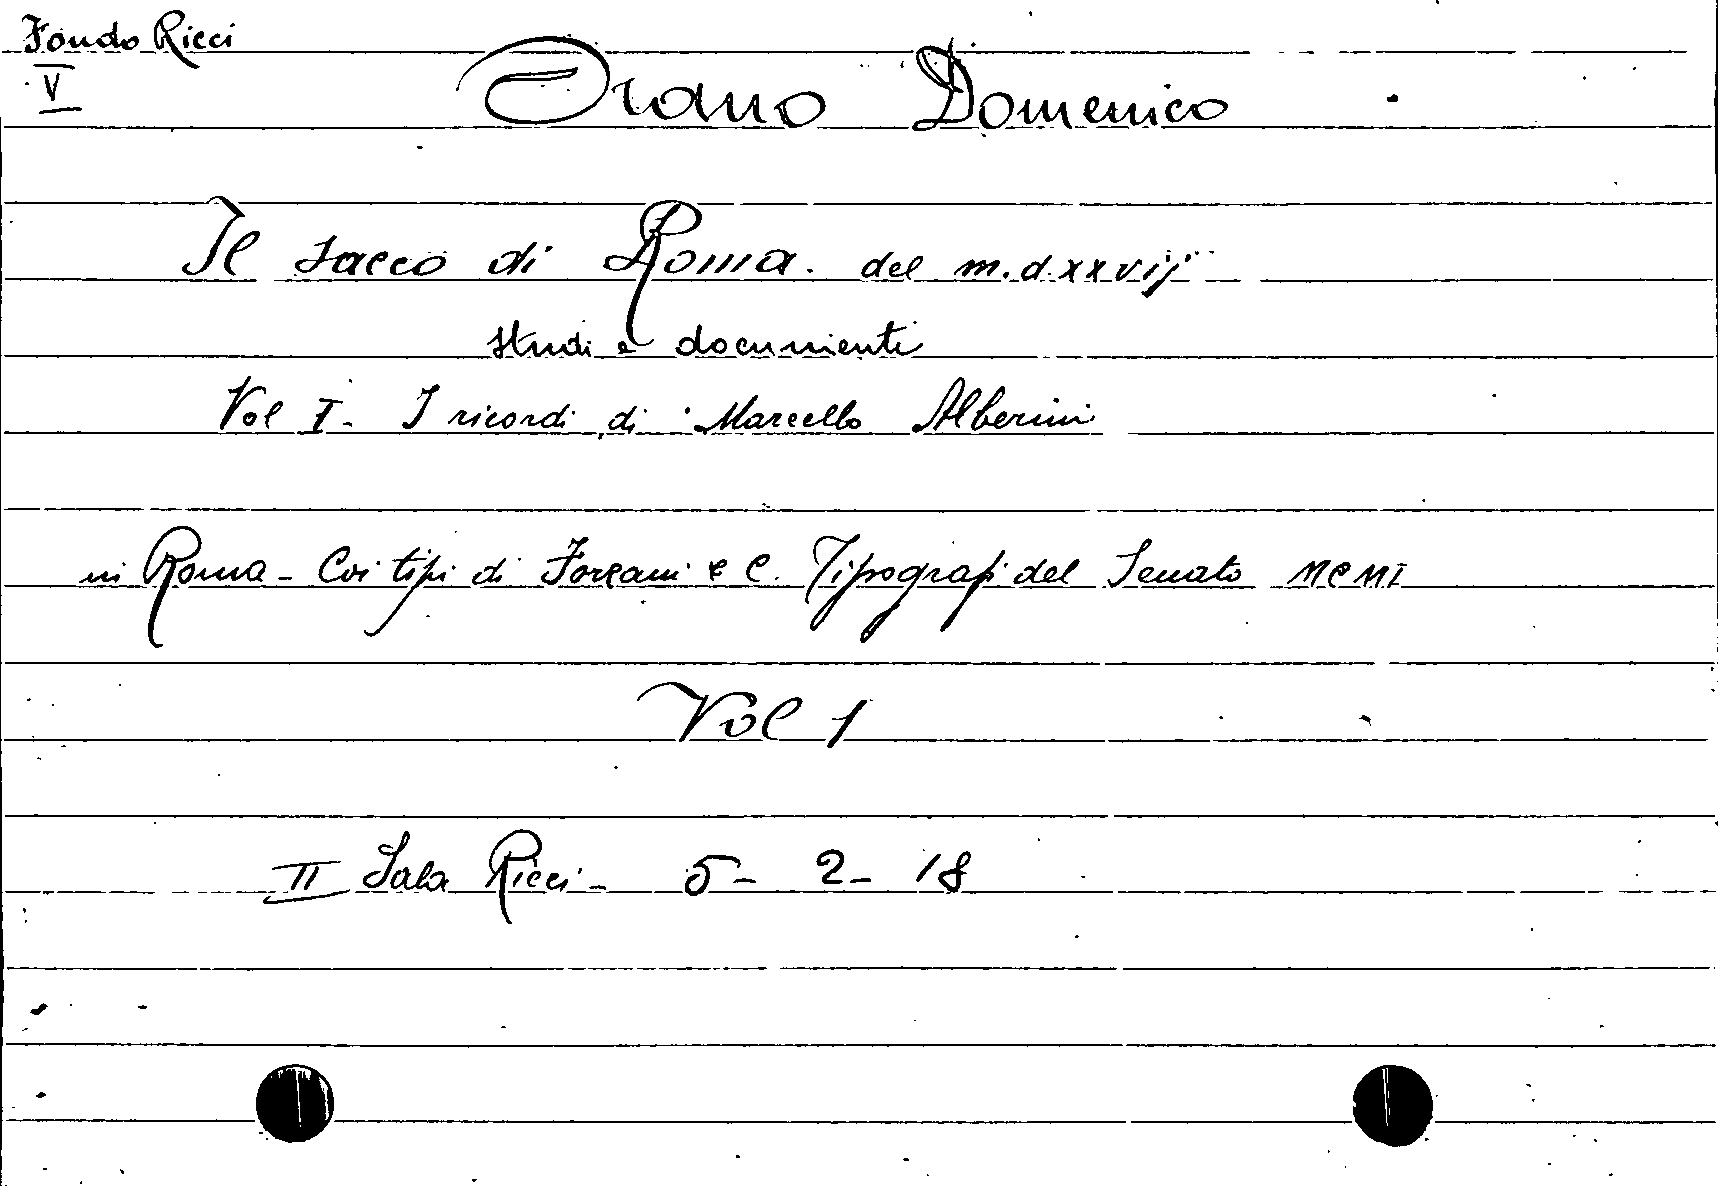 Fondo Ricci
V
Orano Domenico
Il sacco di Roma. del m.d.xxvij
studi e documenti
Vol I - I ricordi di Marcello Alberini
in Roma - Coi tipi di Forzani e C. Tipografi del Senato MCMI
Vol 1
II Sala Ricci - 5 - 2 - 18